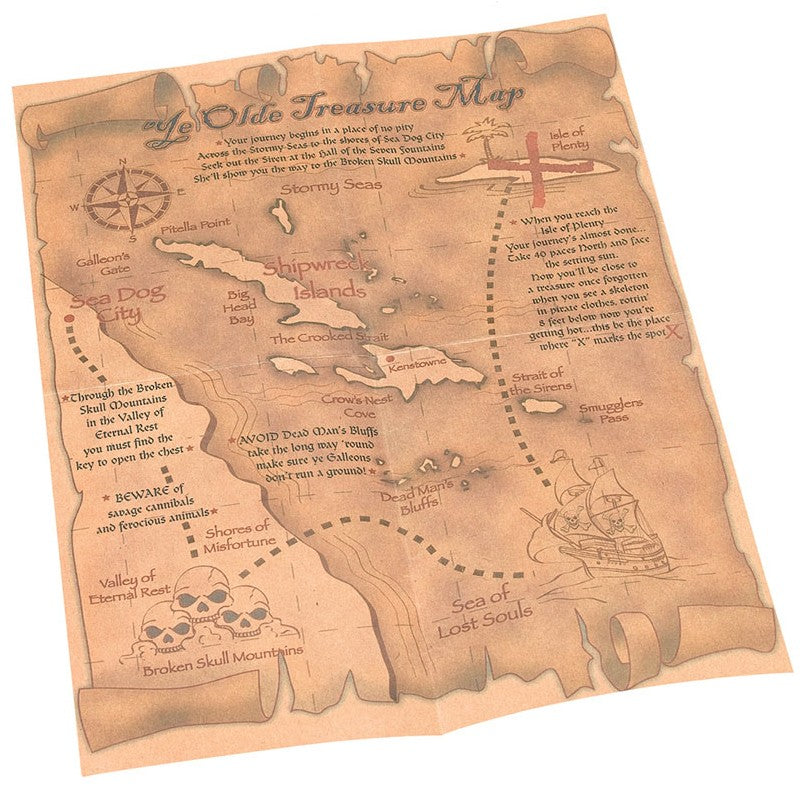 Ye Olde Treasure Map
★Your journey begins in a place of no pity
Across the Stormy Seas to the shores of Sea Dog City
Seek out the Siren at the Hall of the Seven Fountains
She'll show you the way to the Broken Skull Mountains★
Isle of
Plenty
N
W
E
S
Stormy Seas
Pitella Point
Galleon's
Gate
Sea Dog
City
Shipwreck
Islands
Big
Head
Bay
The Crooked Strait
Kenstowne
Crow's Nest
Cove
★When you reach the
Isle of Plenty
Your journey's almost done...
Take 40 paces North and face
the setting sun.
Now you'll be close to
a treasure once forgotten
when you see a skeleton
in pirate clothes, rottin'
8 feet below now you're
getting hot...this be the place
where "X" marks the spot X
Strait of
the Sirens
Smugglers
Pass
★Through the Broken
Skull Mountains
in the Valley of
Eternal Rest
you must find the
key to open the chest★
★AVOID Dead Man's Bluffs
take the long way 'round
make sure ye Galleons
don't run a ground!★
Dead Man's
Bluffs
★ BEWARE of
savage cannibals
and ferocious animals★
Shores of
Misfortune
Valley of
Eternal Rest
Broken Skull Mountains
Sea of
Lost Souls